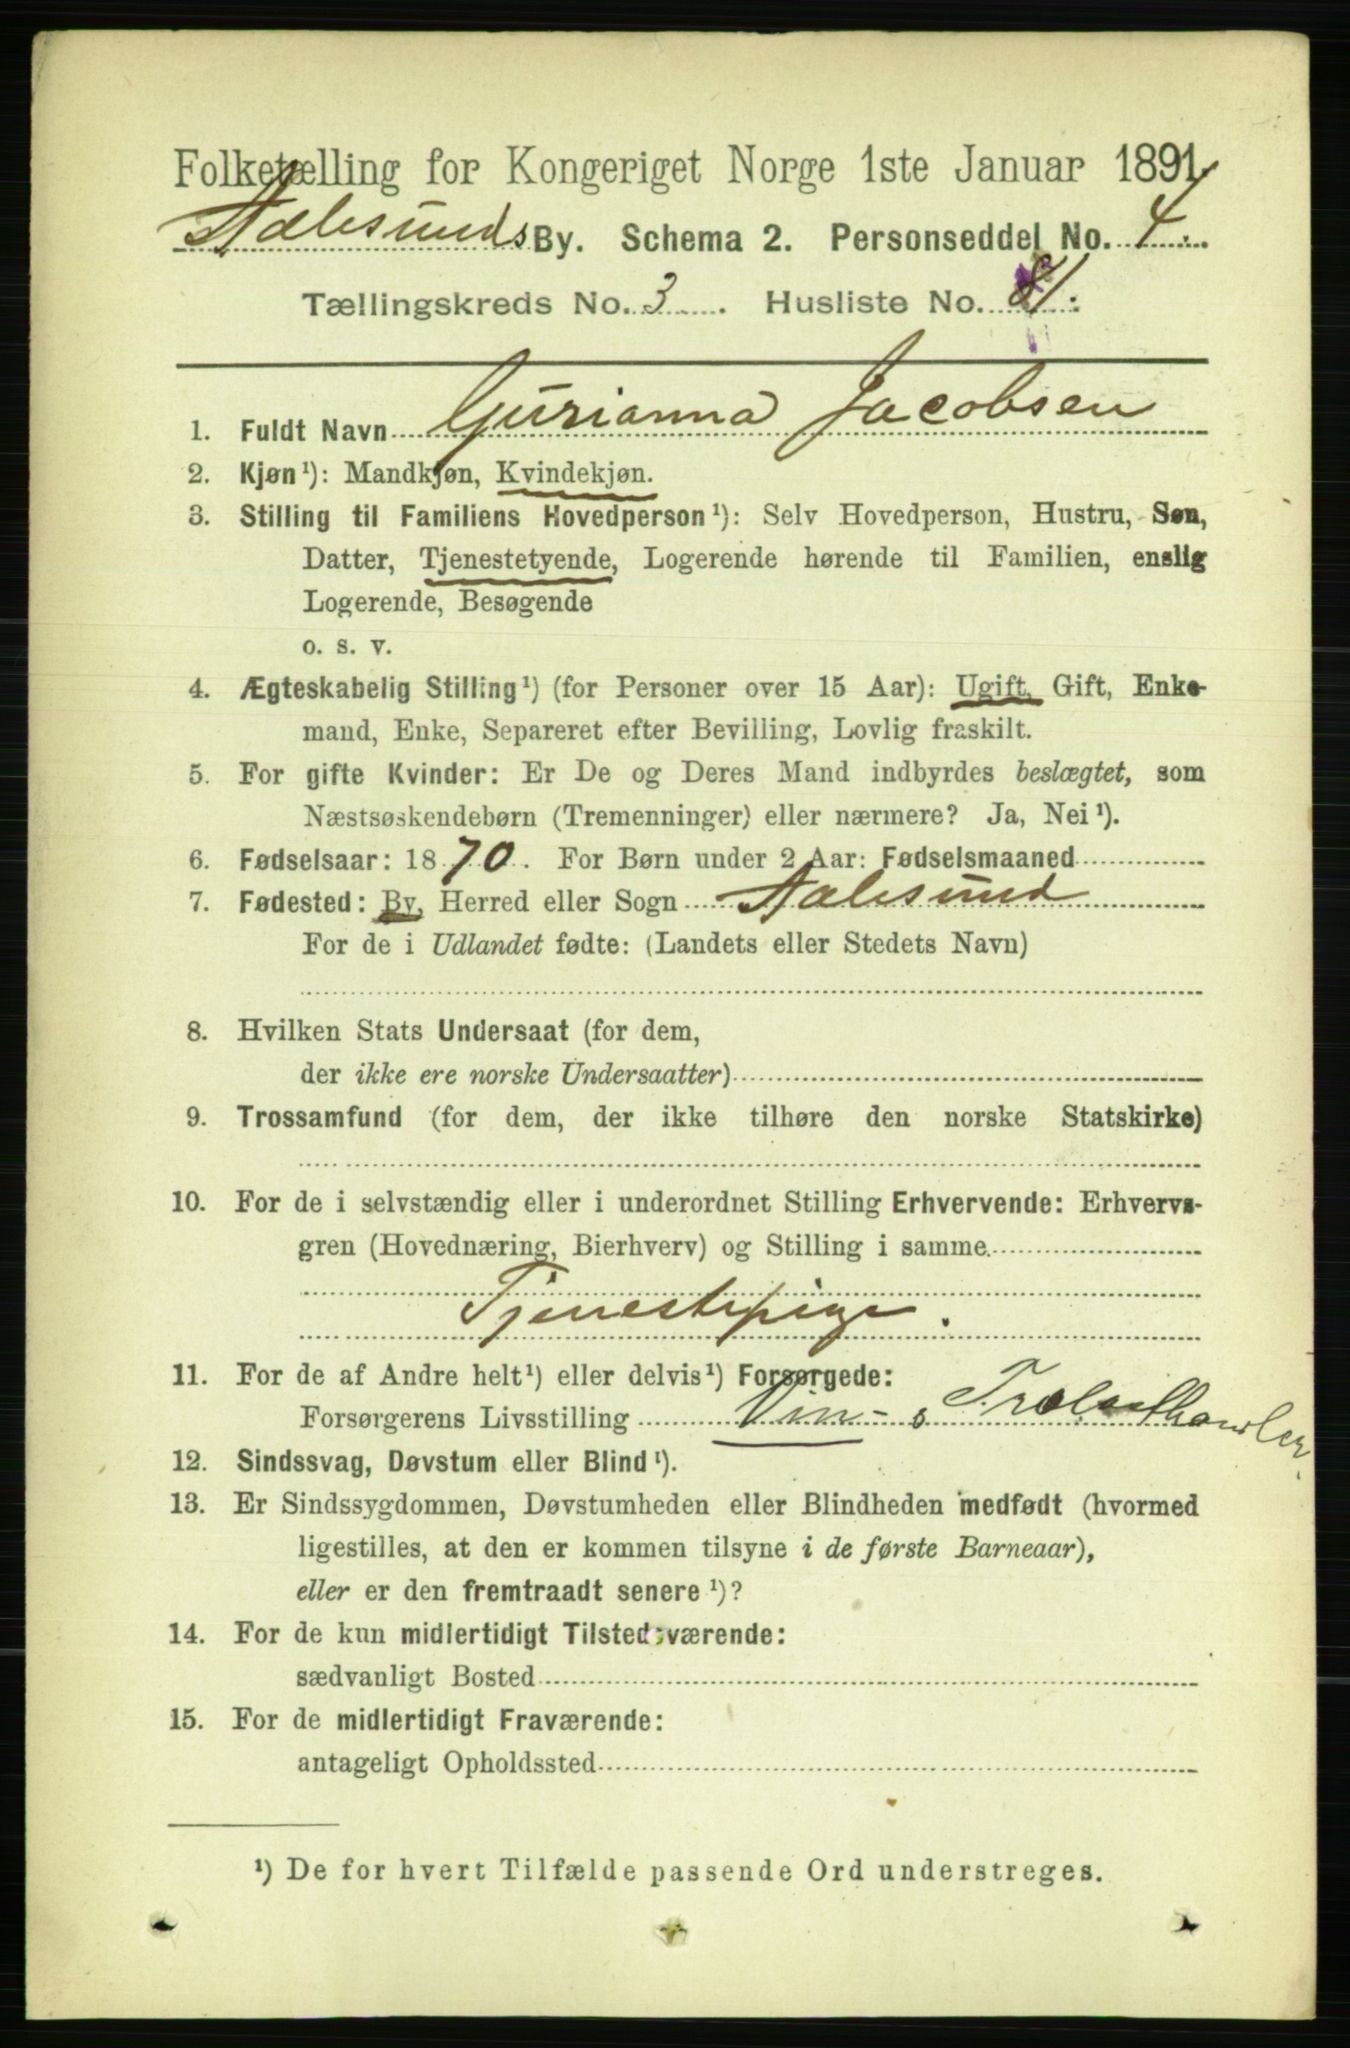 Folketælling for Kongeriget Norge 1ste Januar 1891.
Aalesunds By. Schema 2. Personseddel No. 4.
Tællingskreds No. 3. Husliste No. 81.
1. Fuldt Navn Gurianna Jacobsen
2. Kjøn¹): Mandkjøn, Kvindekjøn.
3. Stilling til Familiens Hovedperson¹): Selv Hovedperson, Hustru, Søn,
Datter, Tjenestetyende, Logerende hørende til Familien, enslig
Logerende, Besøgende
o. s. v.
4. Ægteskabelig Stilling¹) (for Personer over 15 Aar): Ugift, Gift, Enke-
mand, Enke, Separeret efter Bevilling, Lovlig fraskilt.
5. For gifte Kvinder: Er De og Deres Mand indbyrdes beslægtet, som
Næstsøskendebørn (Tremenninger) eller nærmere? Ja, Nei¹).
6. Fødselsaar: 1870. For Børn under 2 Aar: Fødselsmaaned
7. Fødested: By, Herred eller Sogn Aalesund
For de i Udlandet fødte: (Landets eller Stedets Navn)
8. Hvilken Stats Undersaat (for dem,
der ikke ere norske Undersaatter)
9. Trossamfund (for dem, der ikke tilhøre den norske Statskirke)
10. For de i selvstændig eller i underordnet Stilling Erhvervende: Erhvervs-
gren (Hovednæring, Bierhverv) og Stilling i samme
Tjenestepige.
11. For de af Andre helt¹) eller delvis¹) Forsørgede:
Forsørgerens Livsstilling Vin- &
12. Sindssvag, Døvstum eller Blind¹).
13. Er Sindssygdommen, Døvstumheden eller Blindheden medfødt (hvormed
ligestilles, at den er kommen tilsyne i de første Barneaar),
eller er den fremtraadt senere¹)?
14. For de kun midlertidigt Tilstedeværende:
sædvanligt Bosted
15. For de midlertidigt Fraværende:
antageligt Opholdssted
¹) De for hvert Tilfælde passende Ord understreges.